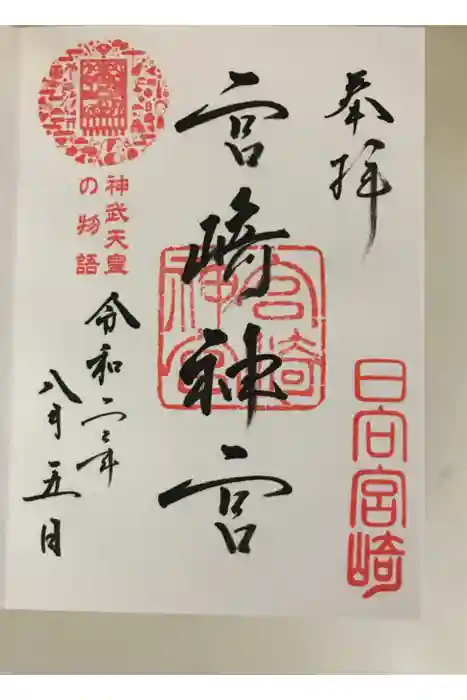 奉拝
日向宮崎
宮崎神宮
宮崎
神宮
神武天皇
の物語
令和二年
八月五日